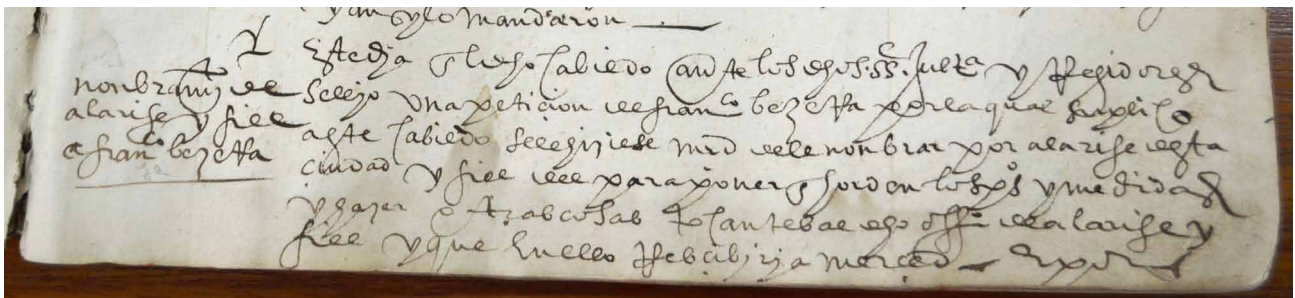 y ansy lo mandaron
nonbrami de
alarife y fiel
a franco bezerra
Este dia en el dho cabildo ante los dhos ss. Justa y Regidores
se leyo una peticion de franco bezerra por la qual suplico
a este cabildo se le hiziese mrd de le nonbrar por alarife desta
ciudad y fiel della para poner en horden los pos y medidas
y hazer otras cosas tocantes al dho offo de alarife y
fiel y que en ello Recibiria merced